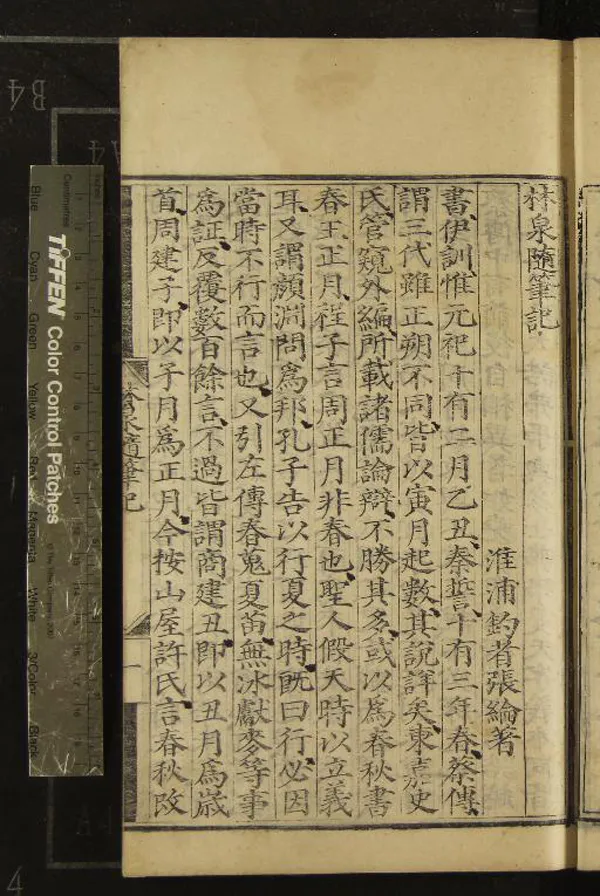 林泉隨筆記
淮浦釣者張綸著
書伊訓惟元祀十有二月乙丑秦誓十有三年春蔡傳
謂三代雖正朔不同皆以寅月起數其說詳矣東嘉史
氏管窺外編所載諸儒論辯不勝其多或以爲春秋書
春王正月程子言周正月非春也聖人假天時以立義
耳又謂顔淵問爲邦孔子告以行夏之時旣曰行必因
當時不行而言也又引左傳春蒐夏苗無冰獻麥等事
爲証反覆數百餘言不過皆謂商建丑即以丑月爲歲
首周建子即以子月爲正月今按山屋許氏言春秋改
林泉隨筆記
一
TIFFEN Color Control Patches
Blue Cyan Green Yellow Red Magenta White 3/Color Black
Centimetres
B4
A4